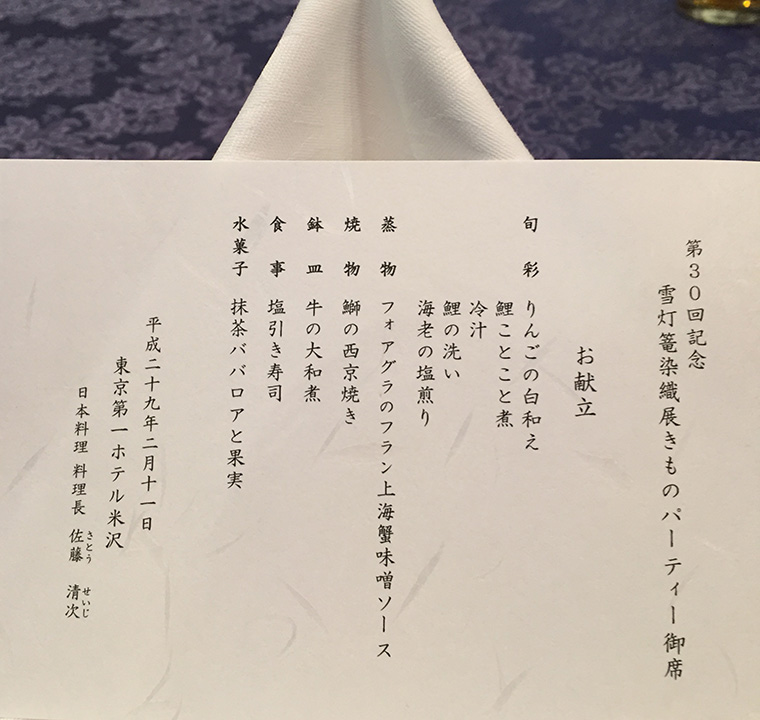 第30回記念
雪灯篭染織展きものパーティー御席
お献立
旬彩 りんごの白和え
鯉ことこと煮
冷汁
鯉の洗い
海老の塩煎り
蒸物 フォアグラのフラン上海蟹味噌ソース
焼物 鰤の西京焼き
鉢皿 牛の大和煮
食事 塩引き寿司
水菓子 抹茶ババロアと果実
平成二十九年二月十一日
東京第一ホテル米沢
日本料理 料理長 佐藤 清次
さとう せいじ